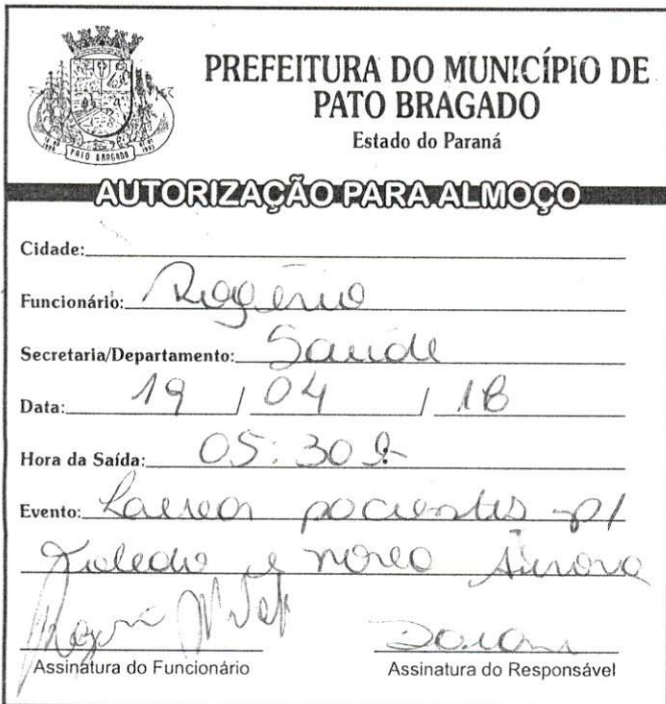 PREFEITURA DO MUNICÍPIO DE
PATO BRAGADO
Estado do Paraná
PATO BRAGADO
AUTORIZAÇÃO PARA ALMOÇO
Cidade:
Funcionário: Rogério
Secretaria/Departamento: Saúde
Data: 19 / 04 / 18
Hora da Saída: 05:30 h
Evento: Levar pacientes p/
Toledo e nova Aurora
Assinatura do Funcionário Assinatura do Responsável